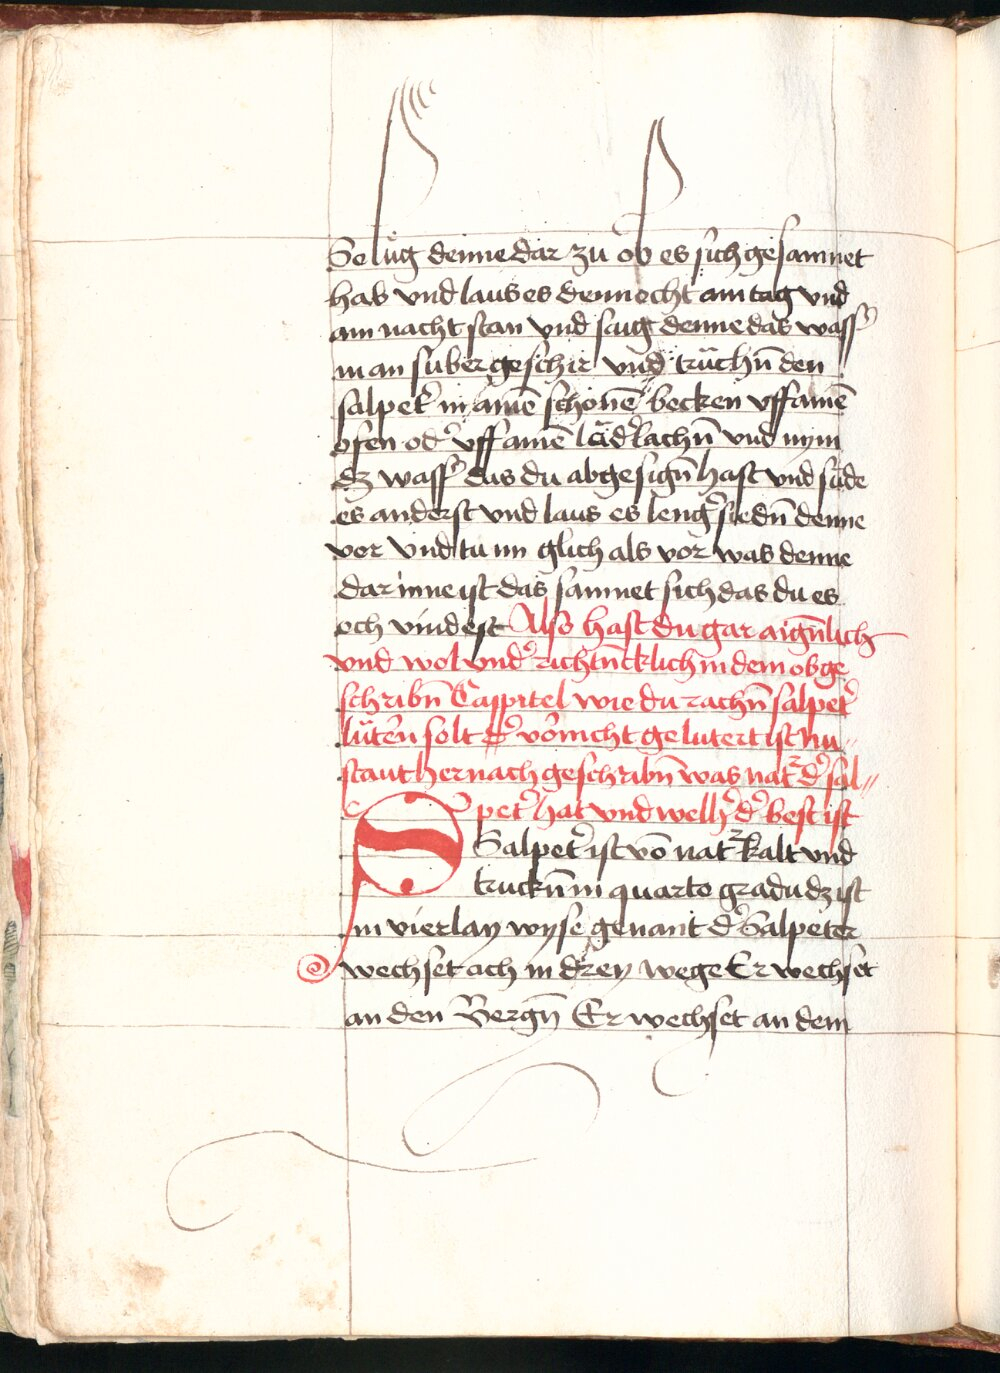 So lůg denne dar zu ob es sich gesamnet
hab vnd laus es dennocht ain tag vnd
ain nacht stan vnd saig denne das wass̉
in an suber geschir vnd trückn̄ den
salpet̉ in aine᷑ schönē becken vff ainē
ofen od̉ vff ainē lǎd̉ lachn̄ vnd nym
dz wass̉ das du abgesign̄ hast vnd süde
es anderst vnd laus es leng̉ siedn̄ denne
vor vnd tu im glich als vor was denne
dar inne ist das samnet sich das du es
och vindest Also hast du gar aign̄lich
vnd wol vnd̉richtn̄cklich in dem obge
schribn̄ Cappitel wie du rachn̄ salpet̉
lütern solt d̉ vor nicht gelutert ist Nu
staut hernach geschribn̄ was nat̉ d̉ sal//
pet̉ hat vnd welh̉ d̉ best ist
Salpet̉ ist vō nat̉ kalt vnd
truckn̄ in quarto gradu dz ist
in vierlay wyse genant d̉ Salpeter
wechset och in drey wege Er wechset
an den Bergn̄ Er wechset an dem